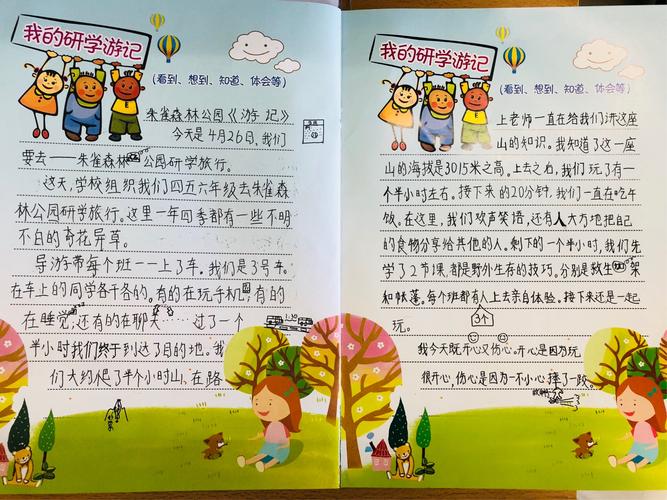 我的研学游记
(看到、想到、知道、体会等)
朱雀森林公园《游记》
今天是4月26日、我们
要去——朱雀森林公园研学旅行。
这天,学校组织我们四五六年级去朱雀森
林公园研学旅行。这里一年四季都有一些不明
不白的奇花异草。
导游带每个班一一上了车。我们是3号车。
在车上的同学各干各的。有的在玩手机,有的
在睡觉,还有的在聊天……过了一个
半小时我们终于到达了目的地。我
们大约爬了半个小时山、在路
我的研学游记
(看到、想到、知道、体会等)
上老师一直在给我们讲这座
山的知识。我知道了这一座
山的海拔是3015米之高。上去之后,我们玩了有一
个半小时左右。接下来的20分钟,我们一直在吃午
饭。在这里,我们欢声笑语,还有人大方地把自己
的食物分享给其他的人。剩下的一个半小时,我们先
学了2节课,都是野外生存的技巧。分别是救生架
和帐蓬。每个班都有人上去亲自体验。接下来还是一起
玩。
3个
我今天既开心又伤心。开心是因为玩
很开心,伤心是因为一不小心摔了一跤。